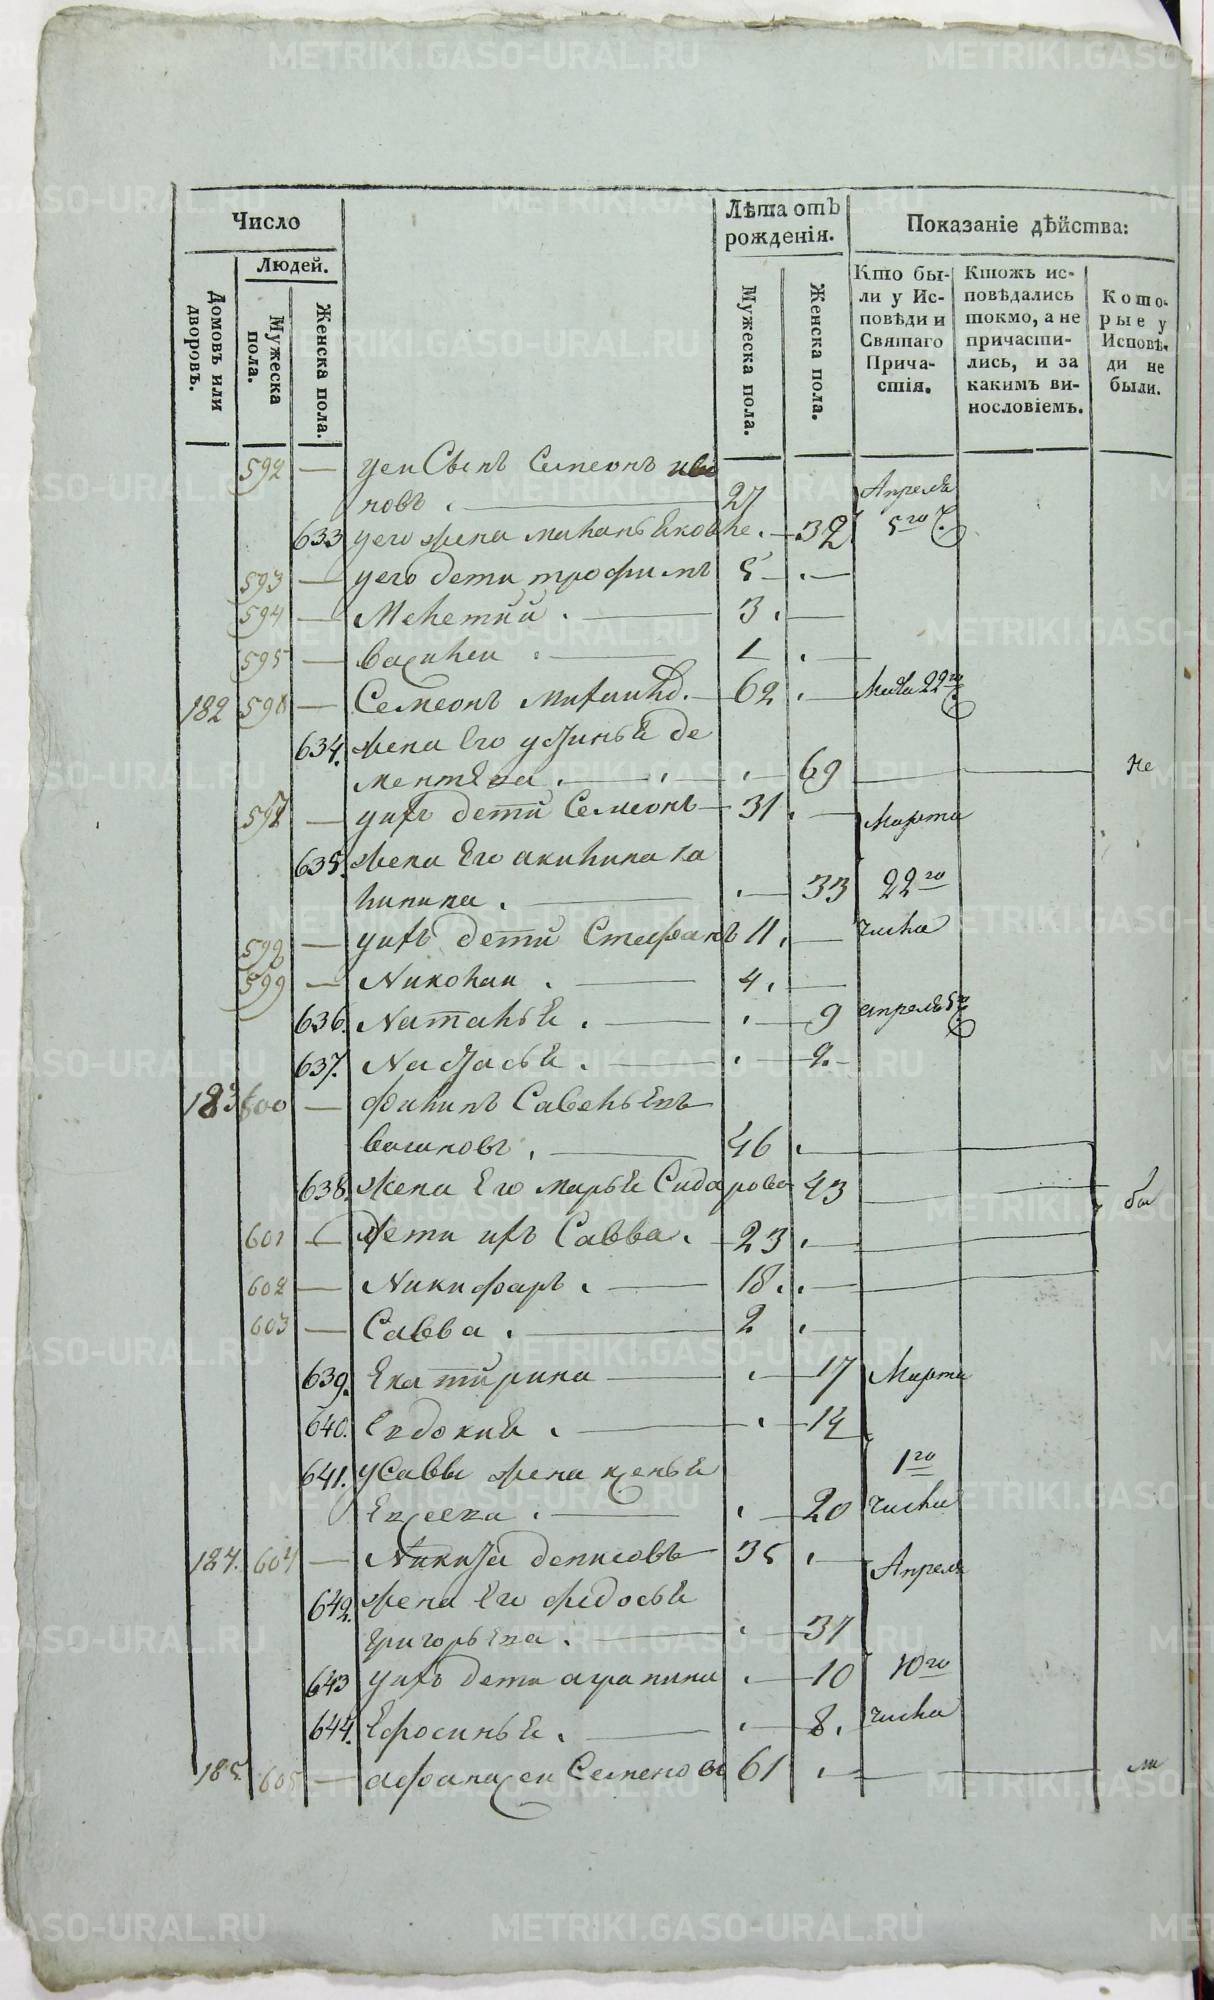 METRIKI.GASO-URAL.RU
Число
Людей.
Домовъ или дворовъ.
Мужеска пола.
Женска пола.
Лѣта отъ рожденія.
Мужеска пола.
Женска пола.
Показаніе дѣйства:
Кто бы-
ли у Ис-
повѣди и
Святаго
Прича-
стія.
Ктожъ ис-
повѣдались
токмо, а не
причасти-
лись, и за
какимъ ви-
нословіемъ.
Кото-
рые у
Исповѣ-
ди не
были.
592 — уеи Сынъ Семеонъ ива
новъ . — 27 Апреля
633 уего жена маланья 32 5го ч.
593 — уего дети трофимъ 5 — . —
594 — Мелетий . — 3 . —
595 — Василеи . — 1 . —
182 596 — Семеонъ 62 . — 22го
634. жена Его устинья де
ментьева . — . — 69 — Не
597 — уихъ дети Семеонъ — 31 . — Марта
635. жена Его акилина га
лилина . — . — 33 22го
598 — уихъ дети Стефанъ 11 . — числа
599 — Николаи . — 4 . —
636. Наталья . — . — 9 апреля 5го
637. Настасья . — . — 2 . —
183 600 — филипъ Савельевъ
— 46 . —
638. жена Его марья Сидарова 43 — бы
601 — дети ихъ Савва . — 23 . —
602 — Никифаръ . — 18 . . —
603 — Савва . — 2 . —
639. Екатирина — . — 17 Марта
640. Евдокия . — . — 14
641. уСаввы жена ксенья 1го
Евсеева . — . — 20 числа
184. 604 — Никита денисовъ — 35 . — Апреля
642. жена Его федосья
григорьева . — . — 37
643 уихъ дети аграпина . — 10 10го
644. Ефросинья . — . — 8 . числа
185. 605 — афанасеи Семеновъ 61 . — ли